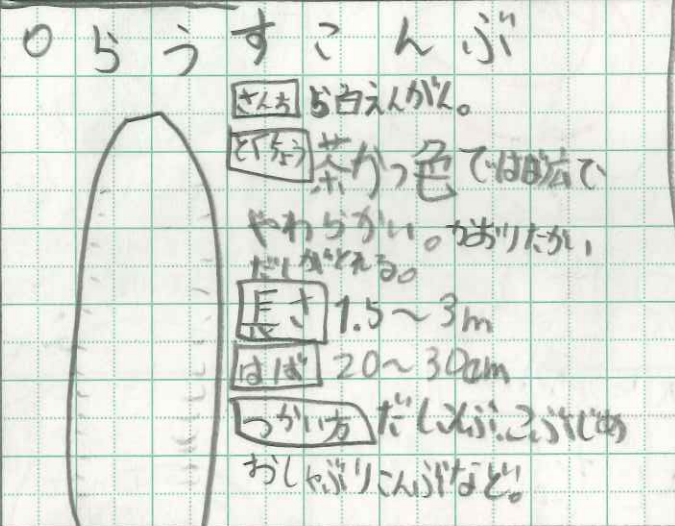 ○らうすこんぶ
さんち ら臼えんがん。
とくちょう 茶かっ色ではば広で
やわらかい。かおりたかい
だしがとれる。
長さ 1.5〜3m
はば 20〜30cm
つかい方 だしこんぶ、こぶじめ
おしゃぶりこんぶなど。